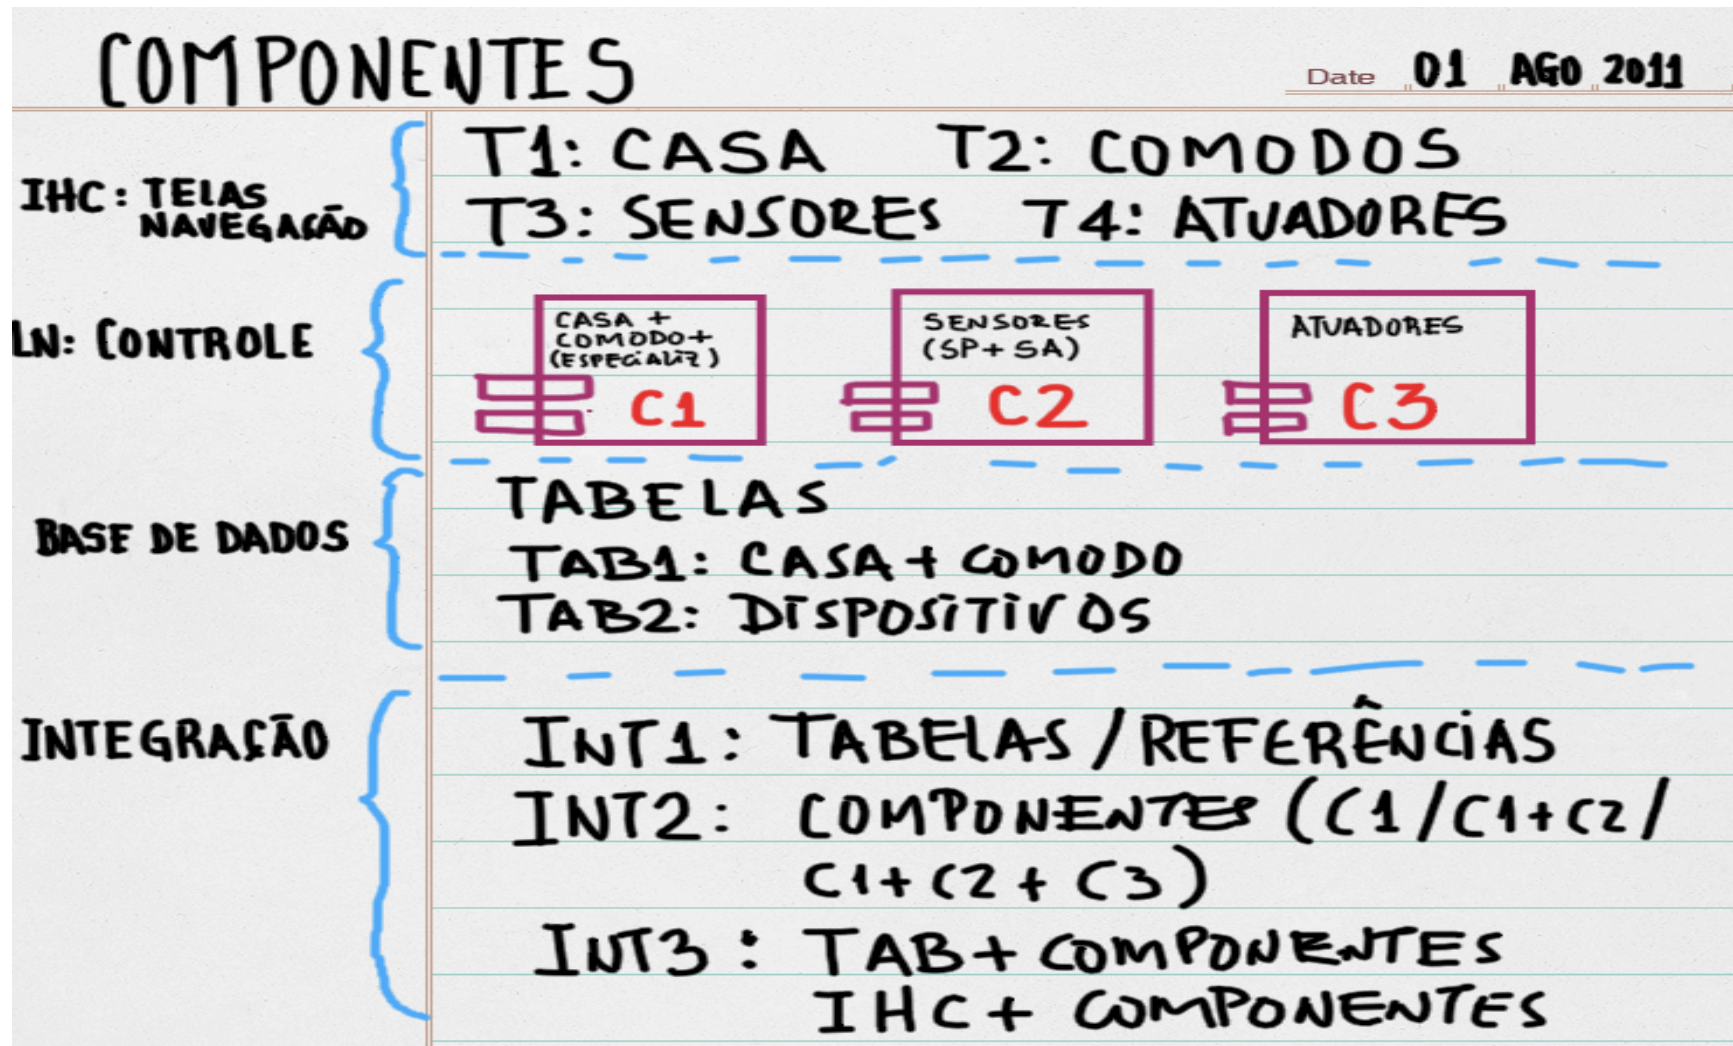 COMPONENTES
Date 01 AGO 2011
IHC: TELAS
NAVEGAÇÃO
T1: CASA T2: COMODOS
T3: SENSORES T4: ATUADORES
LN: CONTROLE
CASA +
COMODO+
(ESPECIALIZ)
C1
SENSORES
(SP+ SA)
C2
ATUADORES
C3
BASE DE DADOS
TABELAS
TAB1: CASA + COMODO
TAB2: DISPOSITIVOS
INTEGRAÇÃO
INT1: TABELAS / REFERÊNCIAS
INT2: COMPONENTES (C1/C1+C2/
C1+C2+C3)
INT3: TAB+COMPONENTES
IHC+ COMPONENTES